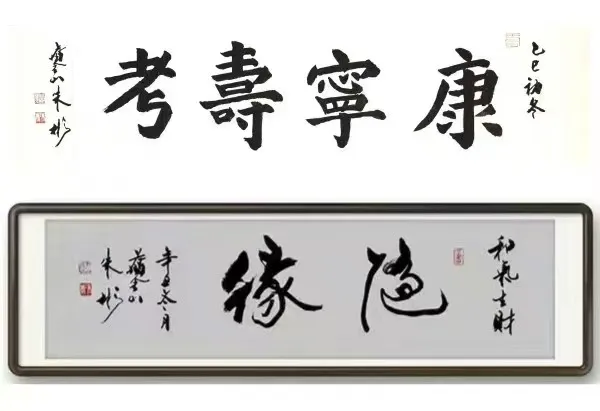 乙巳初冬
康寧壽考
朱彬
和氣生財
隨緣
辛丑冬月
朱彬